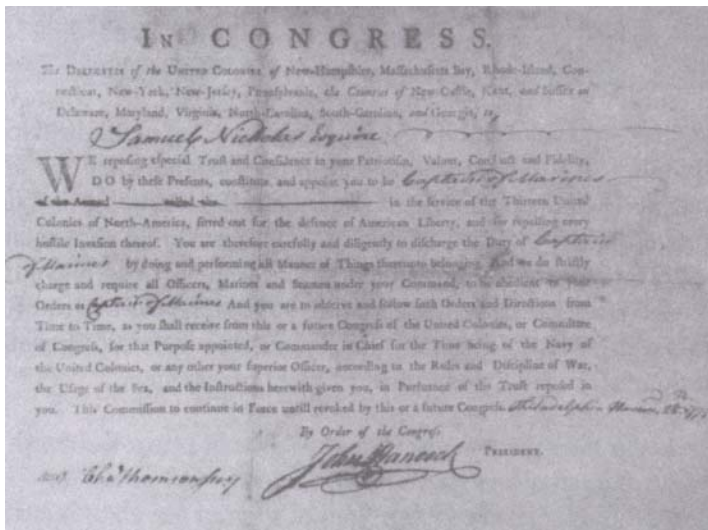 IN CONGRESS.
The DELEGATES of the UNITED COLONIES of New-Hampshire, Massachusetts Bay, Rhode-Island, Con-
necticut, New-York, New-Jersey, Pennsylvania, the Counties of New-Castle, Kent, and Sussex on
Delaware, Maryland, Virginia, North-Carolina, South-Carolina, and Georgia, to
Samuel Nicholas Esquire
WE reposing especial Trust and Confidence in your Patriotism, Valour, Conduct and Fidelity,
DO by these Presents, constitute and appoint you to be Captain of Marines
of the Armed called the in the service of the Thirteen United
Colonies of North-America, fitted out for the defence of American Liberty, and for repelling every
hostile Invasion thereof. You are therefore carefully and diligently to discharge the Duty of Captain
of Marines by doing and performing all Manner of Things thereunto belonging. And we do strictly
charge and require all Officers, Marines and Seamen under your Command, to be obedient to your
Orders as Captain of Marines And you are to observe and follow such Orders and Directions from
Time to Time, as you shall receive from this or a future Congress of the United Colonies, or Committee
of Congress, for that Purpose appointed, or Commander in Chief for the Time being of the Navy of
the United Colonies, or any other your superior Officer, according to the Rules and Discipline of War,
the Usage of the Sea, and the Instructions herewith given you, in Pursuance of the Trust reposed in
you. This Commission to continue in Force untill revoked by this or a future Congress. Philadelphia 28
By Order of the Congress
John Hancock PRESIDENT.
Attest Cha Thomson secy